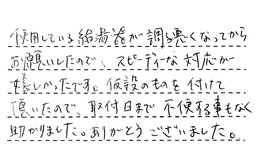 使用している給湯器が調子悪くなってから
お願いしたので、スピーディーな対応が
嬉しかったです。仮設のものを付けて
頂いたので、取付日まで不便する事もなく
助かりました。ありがとうございました。